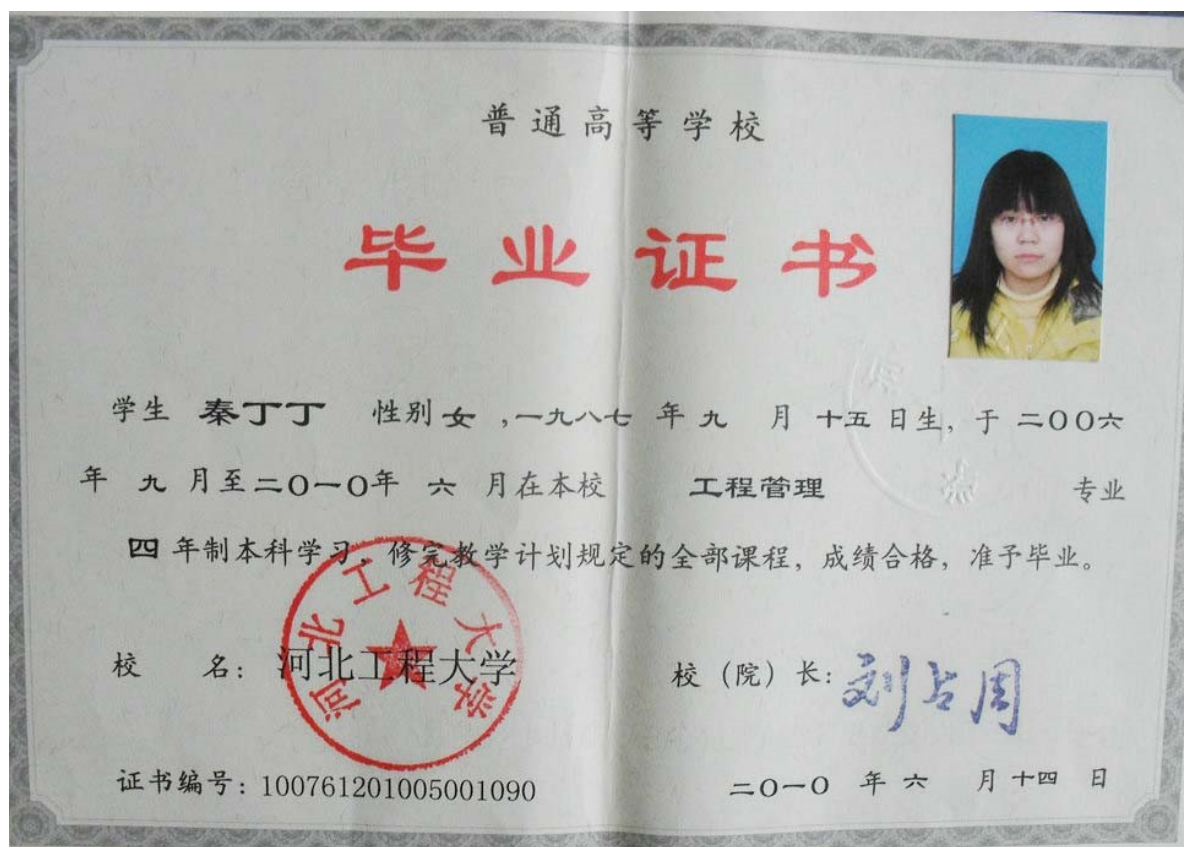 普通高等学校
毕业证书
学生 秦丁丁 性别 女 ,一九八七 年 九 月 十五 日生, 于 二〇〇六
年 九 月至二〇一〇年 六 月在本校 工程管理 专业
四 年制本科学习, 修完教学计划规定的全部课程, 成绩合格, 准予毕业。
河北工程大学
校 名: 河北工程大学 校（院）长: 刘占周
证书编号: 100761201005001090 二〇一〇 年 六 月 十四 日